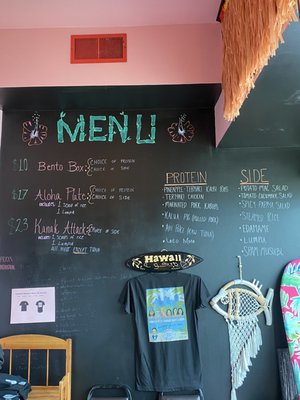 MENU
$10 Bento Box: CHOICE OF PROTEIN
CHOICE OF SIDE
$17 Aloha Plate: CHOICE OF PROTEIN
CHOICE OF SIDE
INCLUDES 2 SCOOPS OF RICE
1 LUMPIA
$23 Kanak Attack: OF SIDE
INCLUDES 2 SCOOPS OF RICE
1 LUMPIA
ALL MEAT EXCEPT TUNA
PROTEIN
PINEAPPLE TERIYAKI KALBI RIBS
TERIYAKI CHICKEN
MARINATED PORK
KALUA PIG (PULLED PORK)
AHI POKE (RAW TUNA)
LOCO MOCO
SIDE
POTATO MAC SALAD
TOMATO CUCUMBER SALAD
SPICY SALAD
STEAMED RICE
EDAMAME
LUMPIA
SPAM MUSUBI
Hawaii